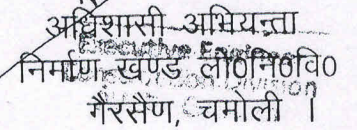 अधिशासी अभियन्ता
Executive Engineer
निर्माण खण्ड लो0नि0वि0
Division
गैरसैण, चमोली ।